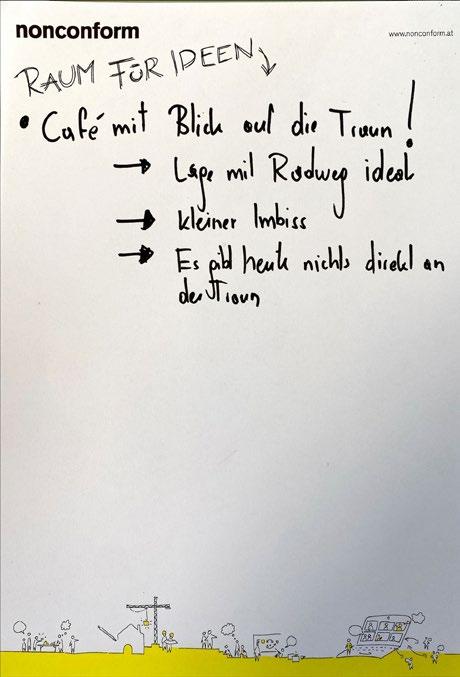 nonconform
www.nonconform.at
RAUM FÜR IDEEN ↓
• Café mit Blick auf die Traun!
→ Lage mit Radweg ideal
→ kleiner Imbiss
→ Es gibt heute nichts direkt an
der Traun